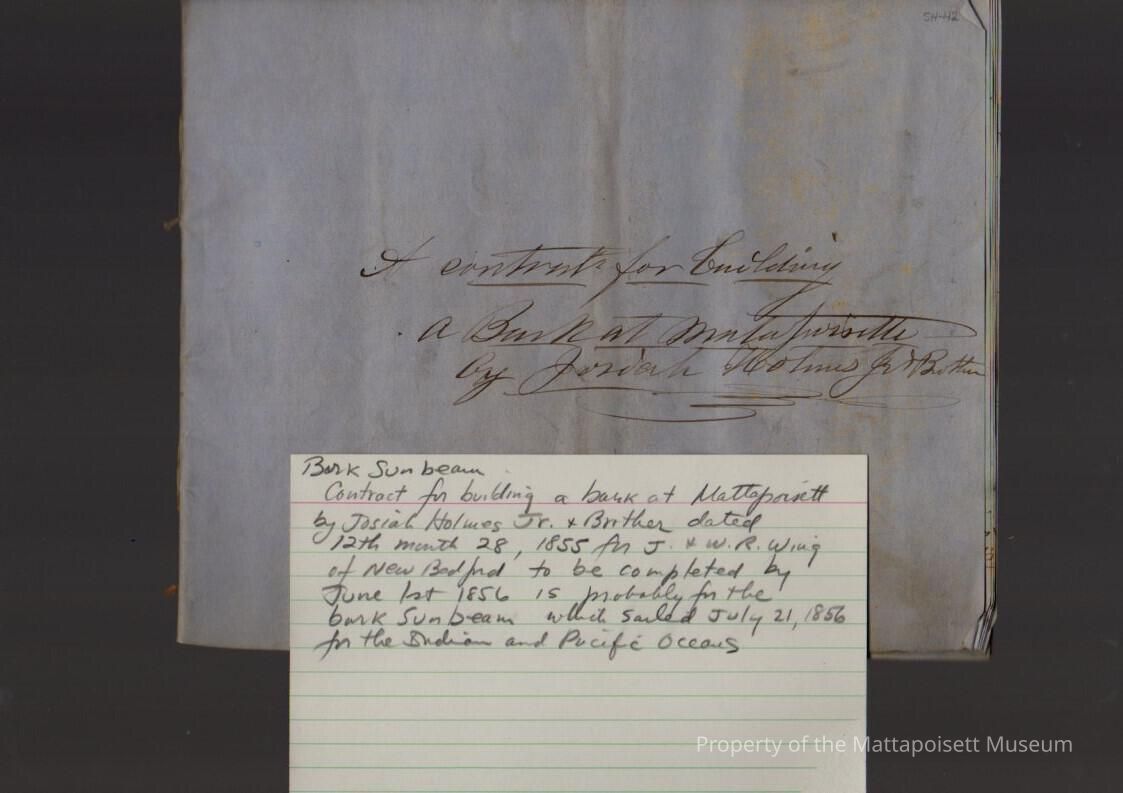 SH-42
A contract for building
a Bark at Mattapoisette
by Josiah Holmes Jr & Brother
Bark Sunbeam
Contract for building a bark at Mattapoisett
by Josiah Holmes Jr. & Brother dated
12th month 28, 1855 for J. & W. R. Wing
of New Bedford to be completed by
June 1st 1856 is probably for the
bark Sunbeam which sailed July 21, 1856
for the Indian and Pacific Oceans
Property of the Mattapoisett Museum